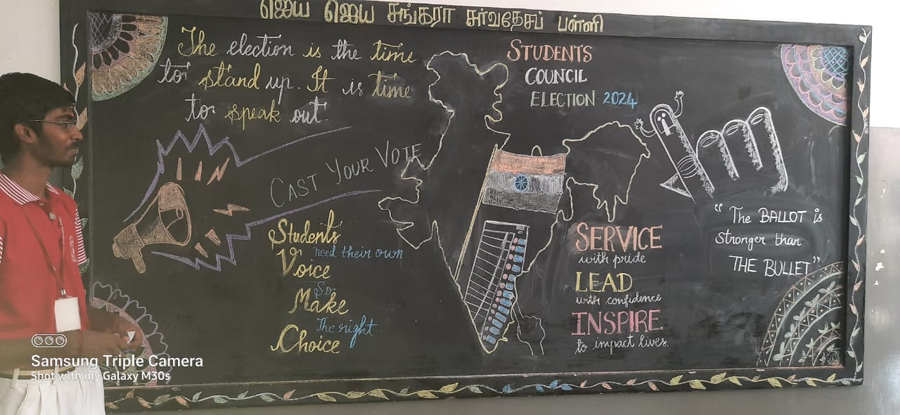 ஜெய ஜெய சங்கரா சர்வதேசப் பள்ளி
The election is the time
to stand up. It is time
to speak out
CAST YOUR VOTE
Students
need their own
Voice
So
Make
The right
Choice
STUDENTS
COUNCIL
ELECTION 2024
SERVICE
with pride
LEAD
with confidence
INSPIRE
to impact lives.
"The BALLOT is
stronger than
THE BULLET"
Samsung Triple Camera
Shot with my Galaxy M30s